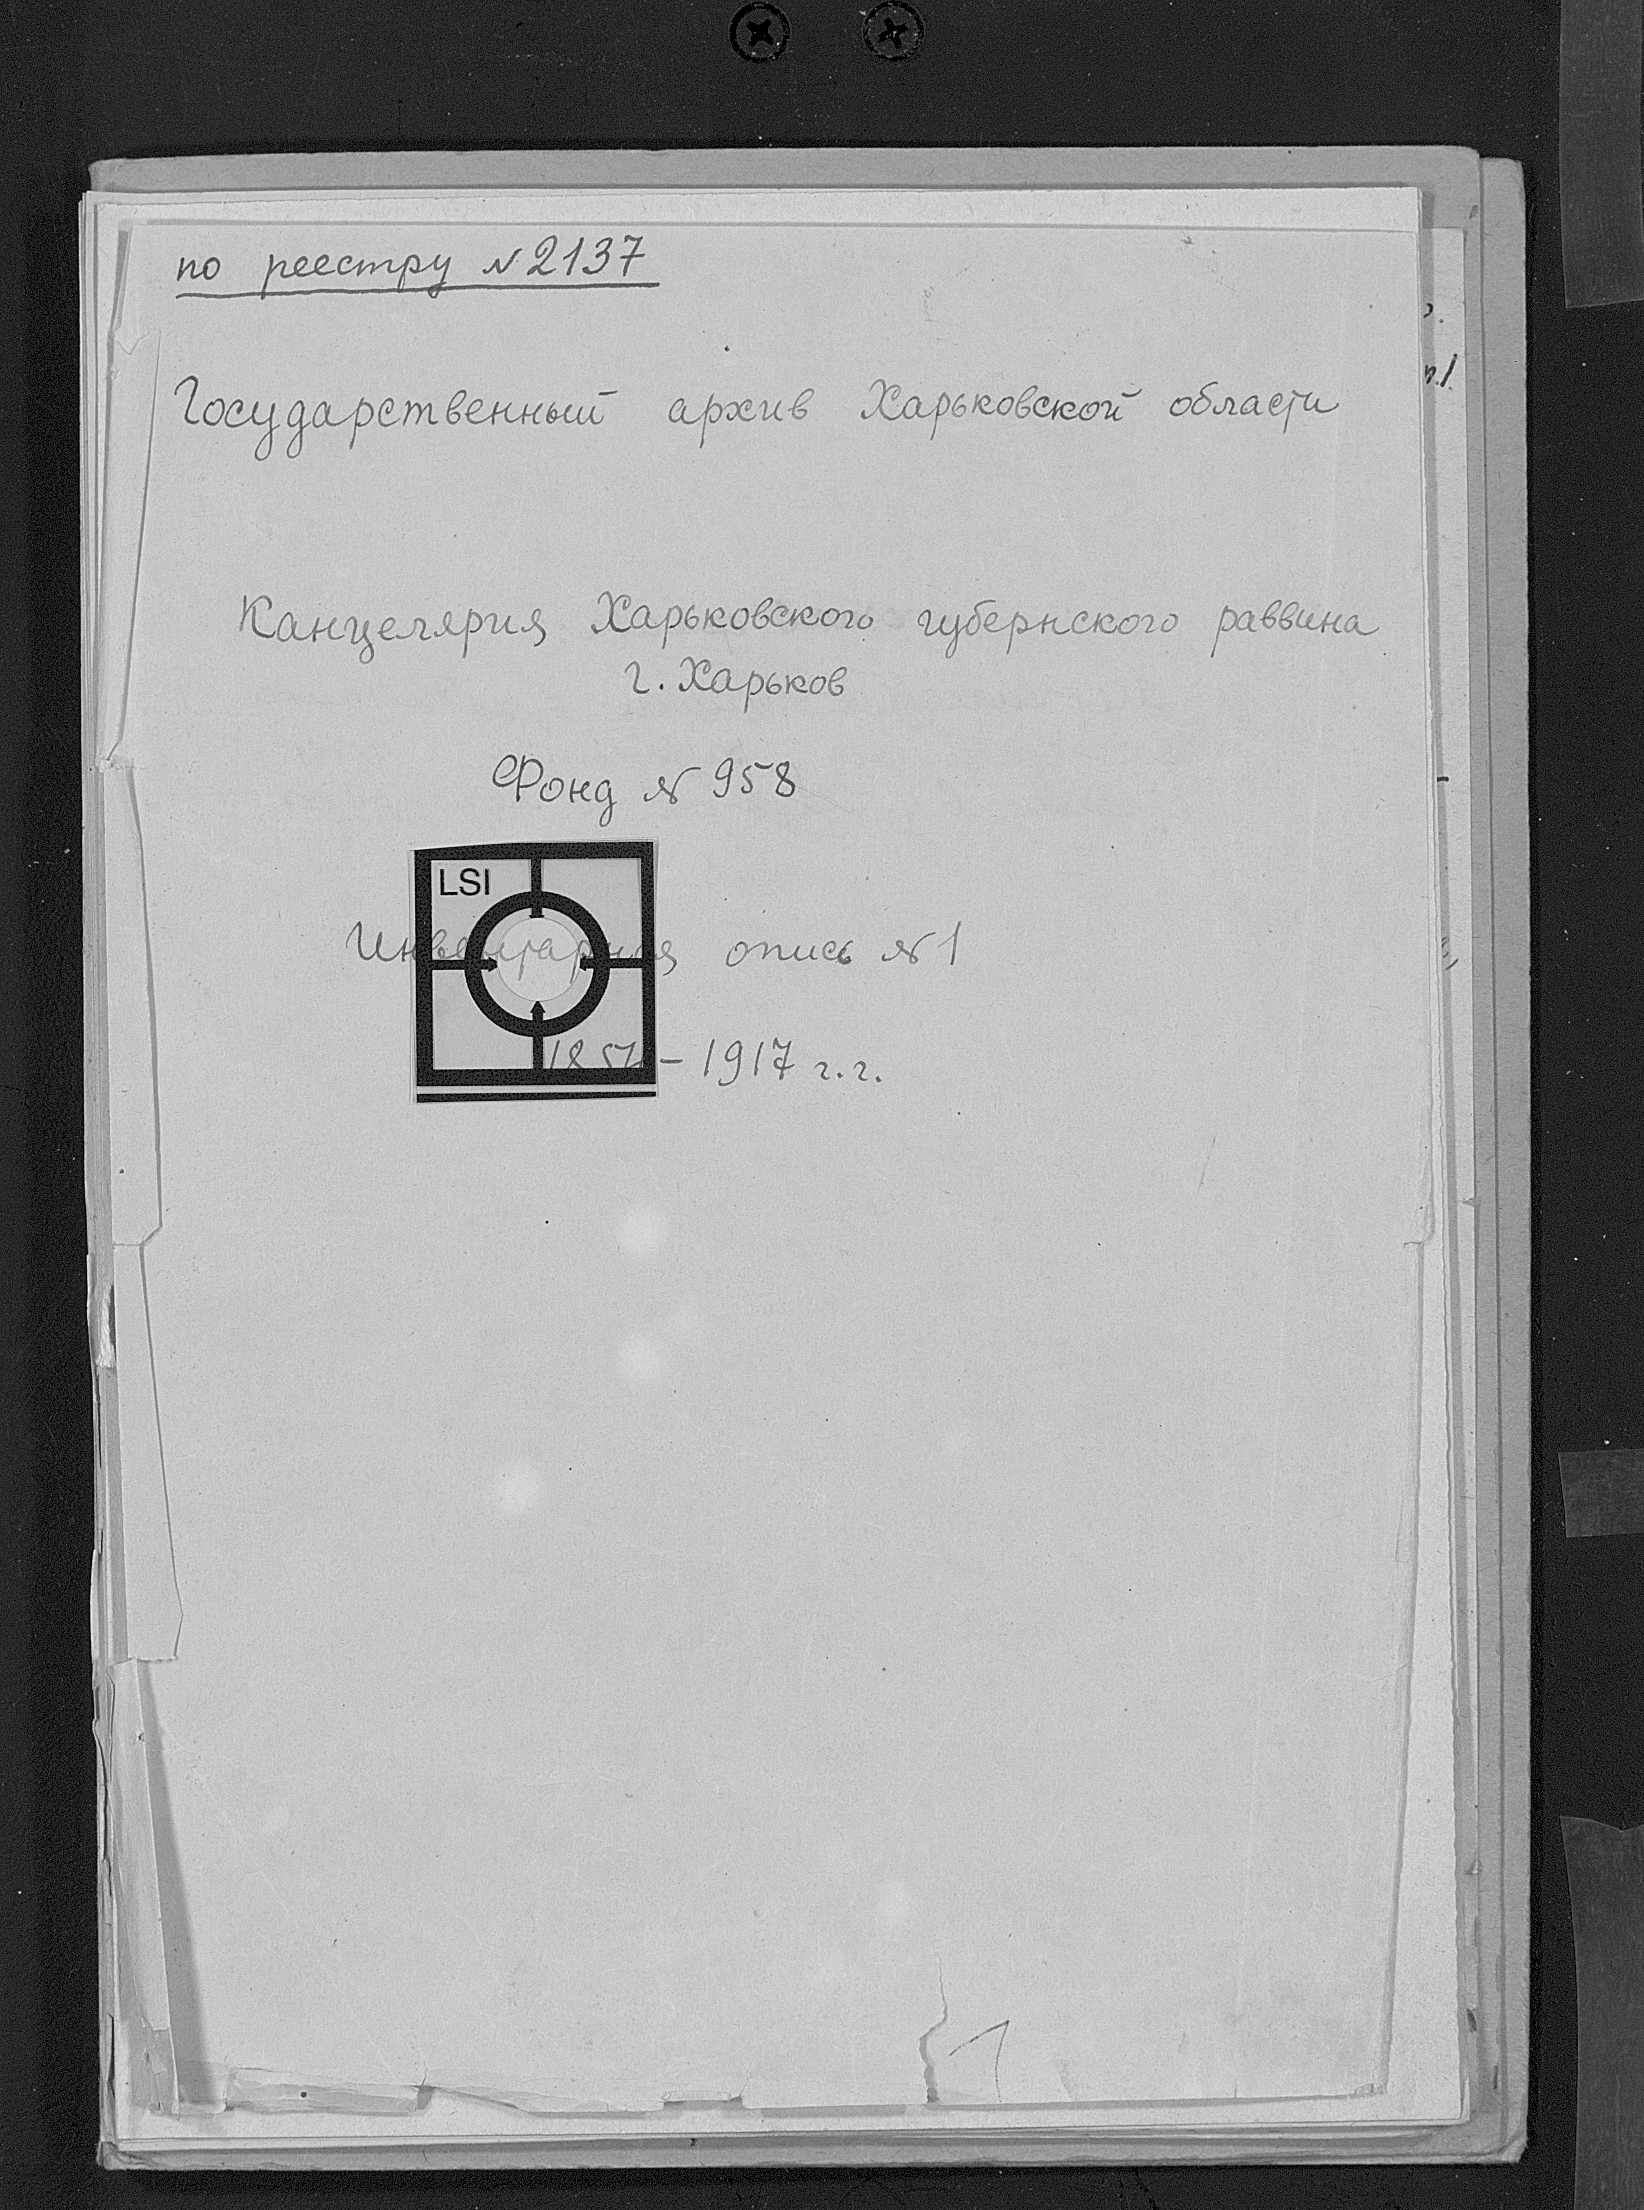 по реестру №2137
Государственный архив Харьковской области
Канцелярия Харьковского губернского раввина
г. Харьков
Фонд № 958
LSI
Инвентарная опись №1
– 1917 г.г.
1